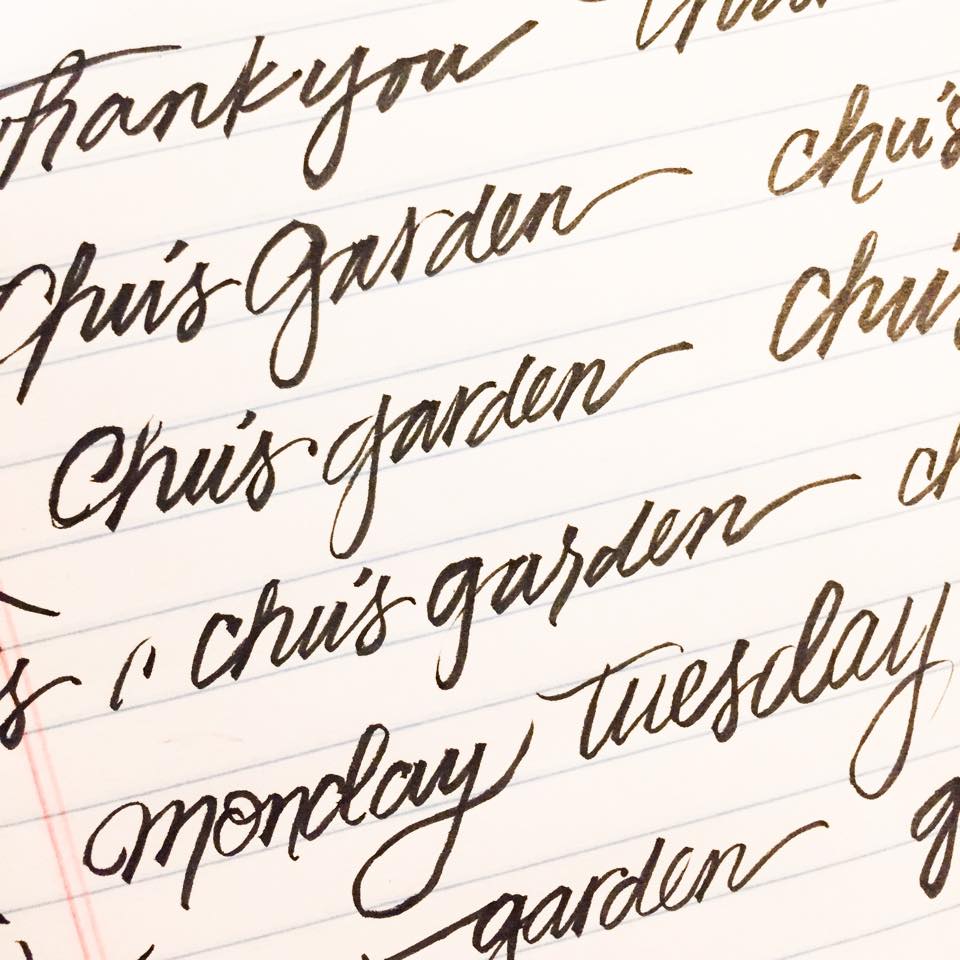 Thank you
Chu's Garden chu's
Chu's garden chu's
chu's garden
monday tuesday
garden